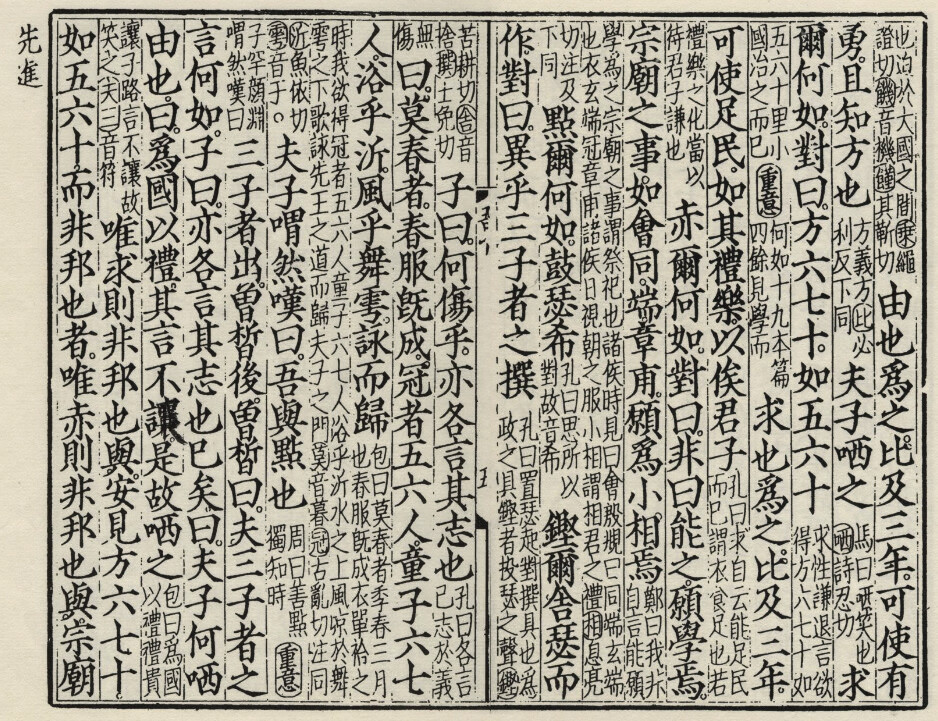 也迫於大國之間乘繩
證切饑音機饉其靳切
由也爲之比及三年可使有
勇且知方也
方義方比必
利反下同
夫子哂之
馬曰哂笑也
哂詩忍切
求
爾何如對曰方六七十如五六十
求性謙退言欲
得方六七十如
五六十里小
國治之而已
重意
何如十九本篇
四餘見學而
求也爲之比及三年
可使足民如其禮樂以俟君子
孔曰求自云能足民
而已謂衣食足也若
禮樂之化當以
待君子謙也
赤爾何如對曰非曰能之願學焉
宗廟之事如會同端章甫願爲小相焉
鄭曰我非
自言能願
學爲之宗廟之事謂祭祀也諸侯時見曰會殷覜曰同端玄端
也衣玄端冠章甫諸侯日視朝之服小相謂相君之禮相息亮
切注及
下同
點爾何如鼓瑟希
孔曰思所以
對故音希
鏗爾舍瑟而
作對曰異乎三子者之撰
孔曰置瑟起對撰具也爲
政之具鏗者投瑟之聲鏗
苦耕切舍音
捨撰士免切
子曰何傷乎亦各言其志也
孔曰各言
己志於義
無
傷
曰莫春者春服旣成冠者五六人童子六七
人浴乎沂風乎舞雩詠而歸
包曰莫春者季春三月
也春服旣成衣單袷之
時我欲得冠者五六人童子六七人浴乎沂水之上風凉於舞
雩之下歌詠先王之道而歸夫子之門莫音暮冠古亂切注同
沂魚依切
雩音于
夫子喟然嘆曰吾與點也
周曰善點
獨知時
重意
子罕顔淵
喟然嘆曰
三子者出曾晳後曾晳曰夫三子者之
言何如子曰亦各言其志也已矣曰夫子何哂
由也曰爲國以禮其言不讓是故哂之
包曰爲國
以禮禮貴
讓子路言不讓故
笑之夫三音符
唯求則非邦也與安見方六七十
如五六十而非邦也者唯赤則非邦也與宗廟
先進